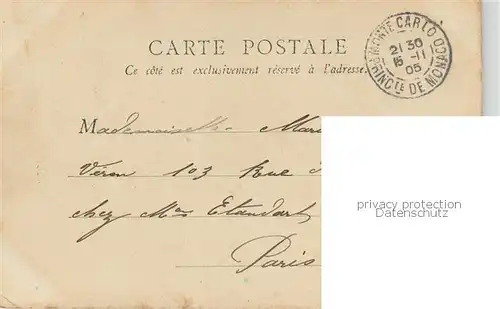 CARTE POSTALE
Ce côté est exclusivement réservé à l'adresse.
MONTE CARLO
21 30
15 -11
05
PRINCTÉ DE MONACO
Mademoiselle Mari
Véron 103 Rue
chez Mme Etandart
Paris
privacy protection
Datenschutz